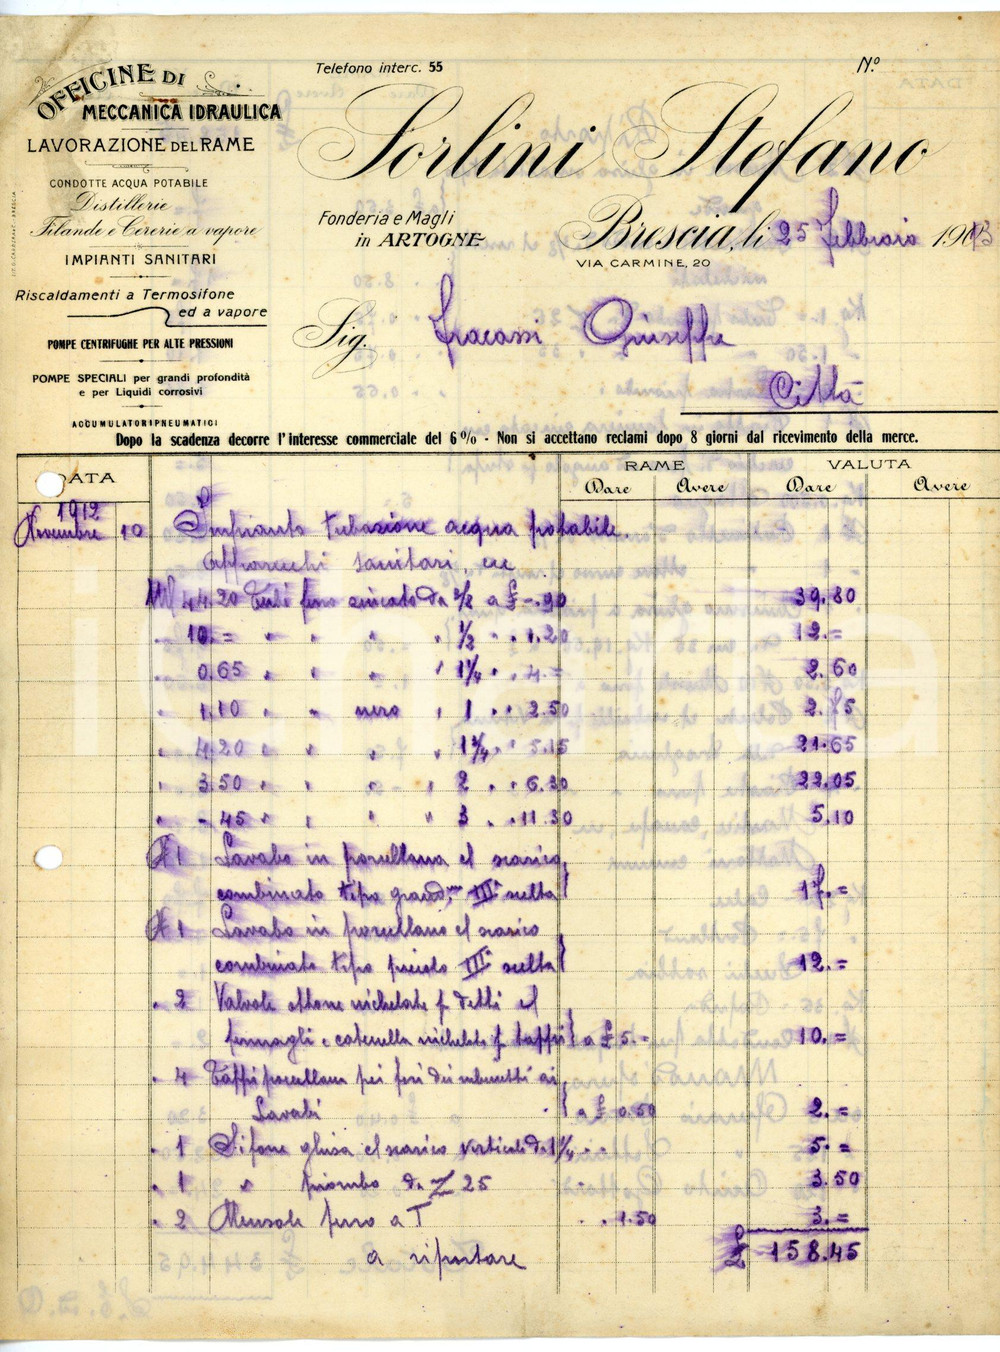 Telefono interc. 55
N.o
OFFICINE DI
MECCANICA IDRAULICA
LAVORAZIONE DEL RAME
CONDOTTE ACQUA POTABILE
Distillerie
Filande e Cererie a vapore
IMPIANTI SANITARI
Riscaldamenti a Termosifone
ed a vapore
POMPE CENTRIFUGHE PER ALTE PRESSIONI
POMPE SPECIALI per grandi profondità
e per Liquidi corrosivi
ACCUMULATORI PNEUMATICI
Sorlini Stefano
Fonderia e Magli
in ARTOGNE
Brescia, li 25 Febbraio 1913
VIA CARMINE, 20
Sig. Fracassi Giuseppe
Città
Dopo la scadenza decorre l'interesse commerciale del 6% - Non si accettano reclami dopo 8 giorni dal ricevimento della merce.
DATA RAME VALUTA
Dare Avere Dare Avere
1912
Novembre 10 Impianto tubazione acqua potabile.
apparecchi sanitari, ecc
Ml 44.20 Tubi ferro zincato da 3/8 a £ -.90 39.80
" 10.= " " " 1/2 " " 1.20 12.=
" 0.65 " " " 1 1/4 " " 4.= 2.60
" 1.10 " " nero " 1 " " 2.50 2.75
" 4.20 " " " 1 3/4 " " 5.15 21.65
" 3.50 " " " 2 " " 6.30 22.05
" -45 " " " 3 " " 11.30 5.10
N 1 Lavabo in porcellana el scarico
combinato tipo grand. III° scelta 17.=
N 1 Lavabo in porcellana el scarico
combinato tipo piccolo III° scelta 12.=
" 2 Valvole ottone nichelate p. detti el
fermagli e catenella nichelate p tappi a £ 5.= 10.=
" 4 Tappi porcellana pei fori dei rubinetti ai
Lavabi a £ 0.50 2.=
" 1 Sifone ghisa el scarico verticale da 1 1/4 " " 5.=
" 1 " piombo da Z 25 " 3.50
" 2 Mensole ferro a T " " 1.50 3.=
a riportare £ 158.45